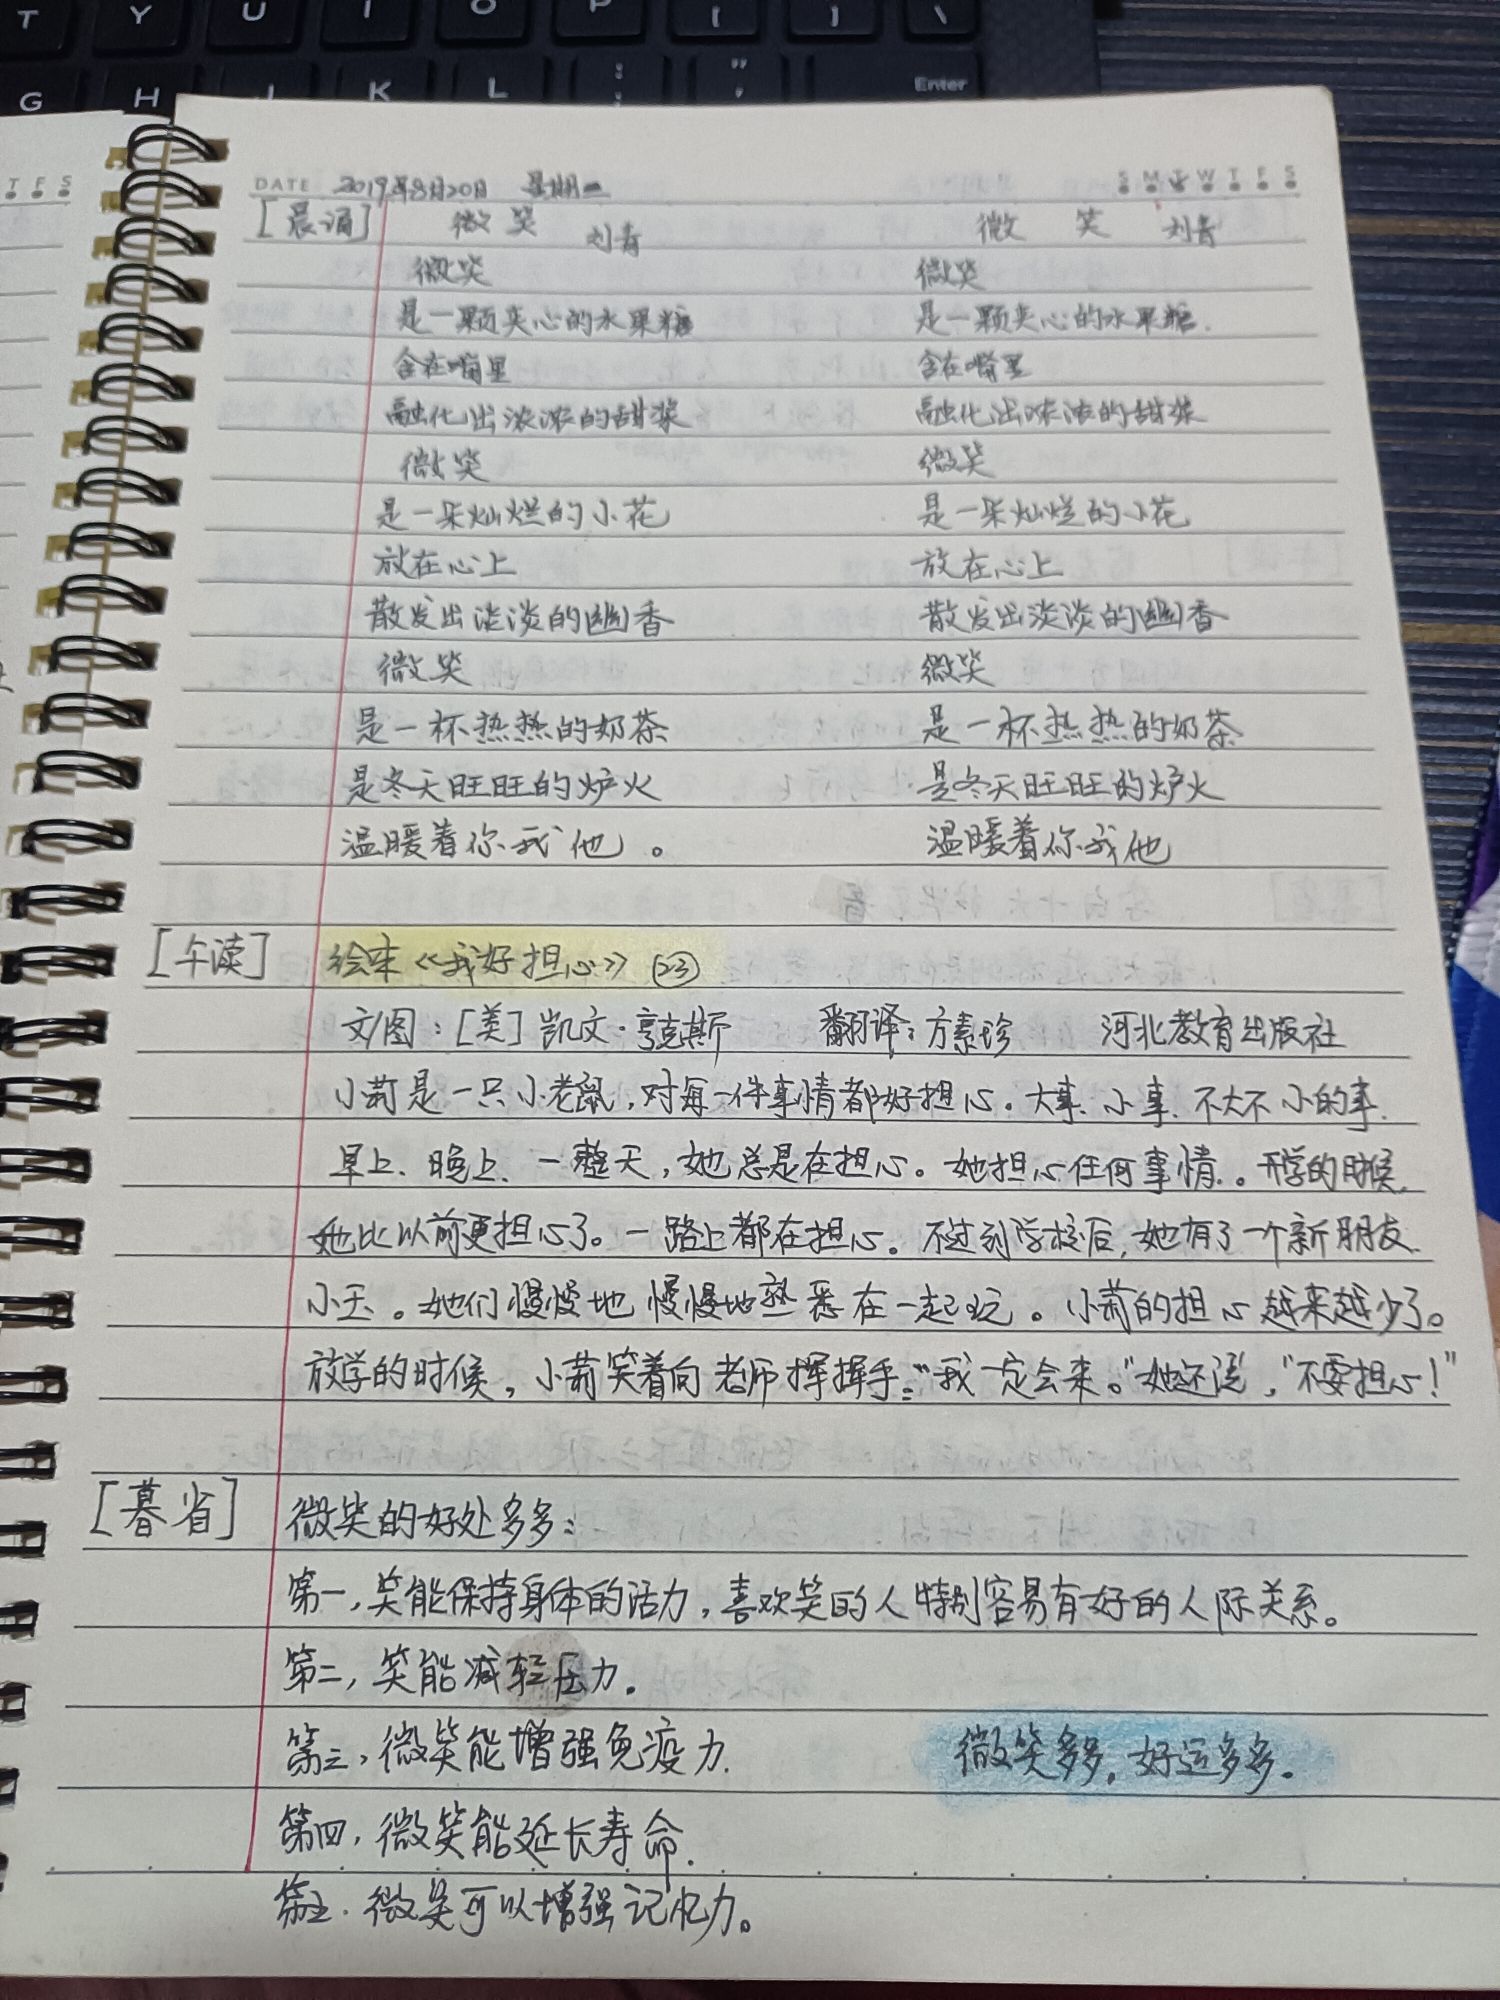 T Y U I O P [ ] \
G H J K L : ; " ' Enter
T F S
DATE 2019年8月20日 星期二 S M T W T F S
[晨诵] 微笑 刘青
微笑
是一颗夹心的水果糖
含在嘴里
融化出浓浓的甜浆
微笑
是一朵灿烂的小花
放在心上
散发出淡淡的幽香
微笑
是一杯热热的奶茶
是冬天旺旺的炉火
温暖着你我他。
微 笑 刘青
微笑
是一颗夹心的水果糖.
含在嘴里
融化出浓浓的甜浆
微笑
是一朵灿烂的小花
放在心上
散发出淡淡的幽香
微笑
是一杯热热的奶茶
是冬天旺旺的炉火
温暖着你我他
[午读] 绘本《我好担心》 23
文/图:[美]凯文·亨克斯 翻译:方素珍 河北教育出版社
小莉是一只小老鼠,对每一件事情都好担心。大事、小事、不大不小的事.
早上、晚上、一整天,她总是在担心。她担心任何事情。开学的时候,
她比以前更担心了。一路上都在担心。不过到学校后,她有了一个新朋友
小玉。她们慢慢地慢慢地熟悉在一起玩。小莉的担心越来越少了。
放学的时候,小莉笑着向老师挥挥手:"我一定会来。"她还说,"不要担心!"
[暮省] 微笑的好处多多:
第一,笑能保持身体的活力,喜欢笑的人特别容易有好的人际关系。
第二,笑能减轻压力.
第三,微笑能增强免疫力. 微笑多多,好运多多.
第四,微笑能延长寿命.
第五.微笑可以增强记忆力。